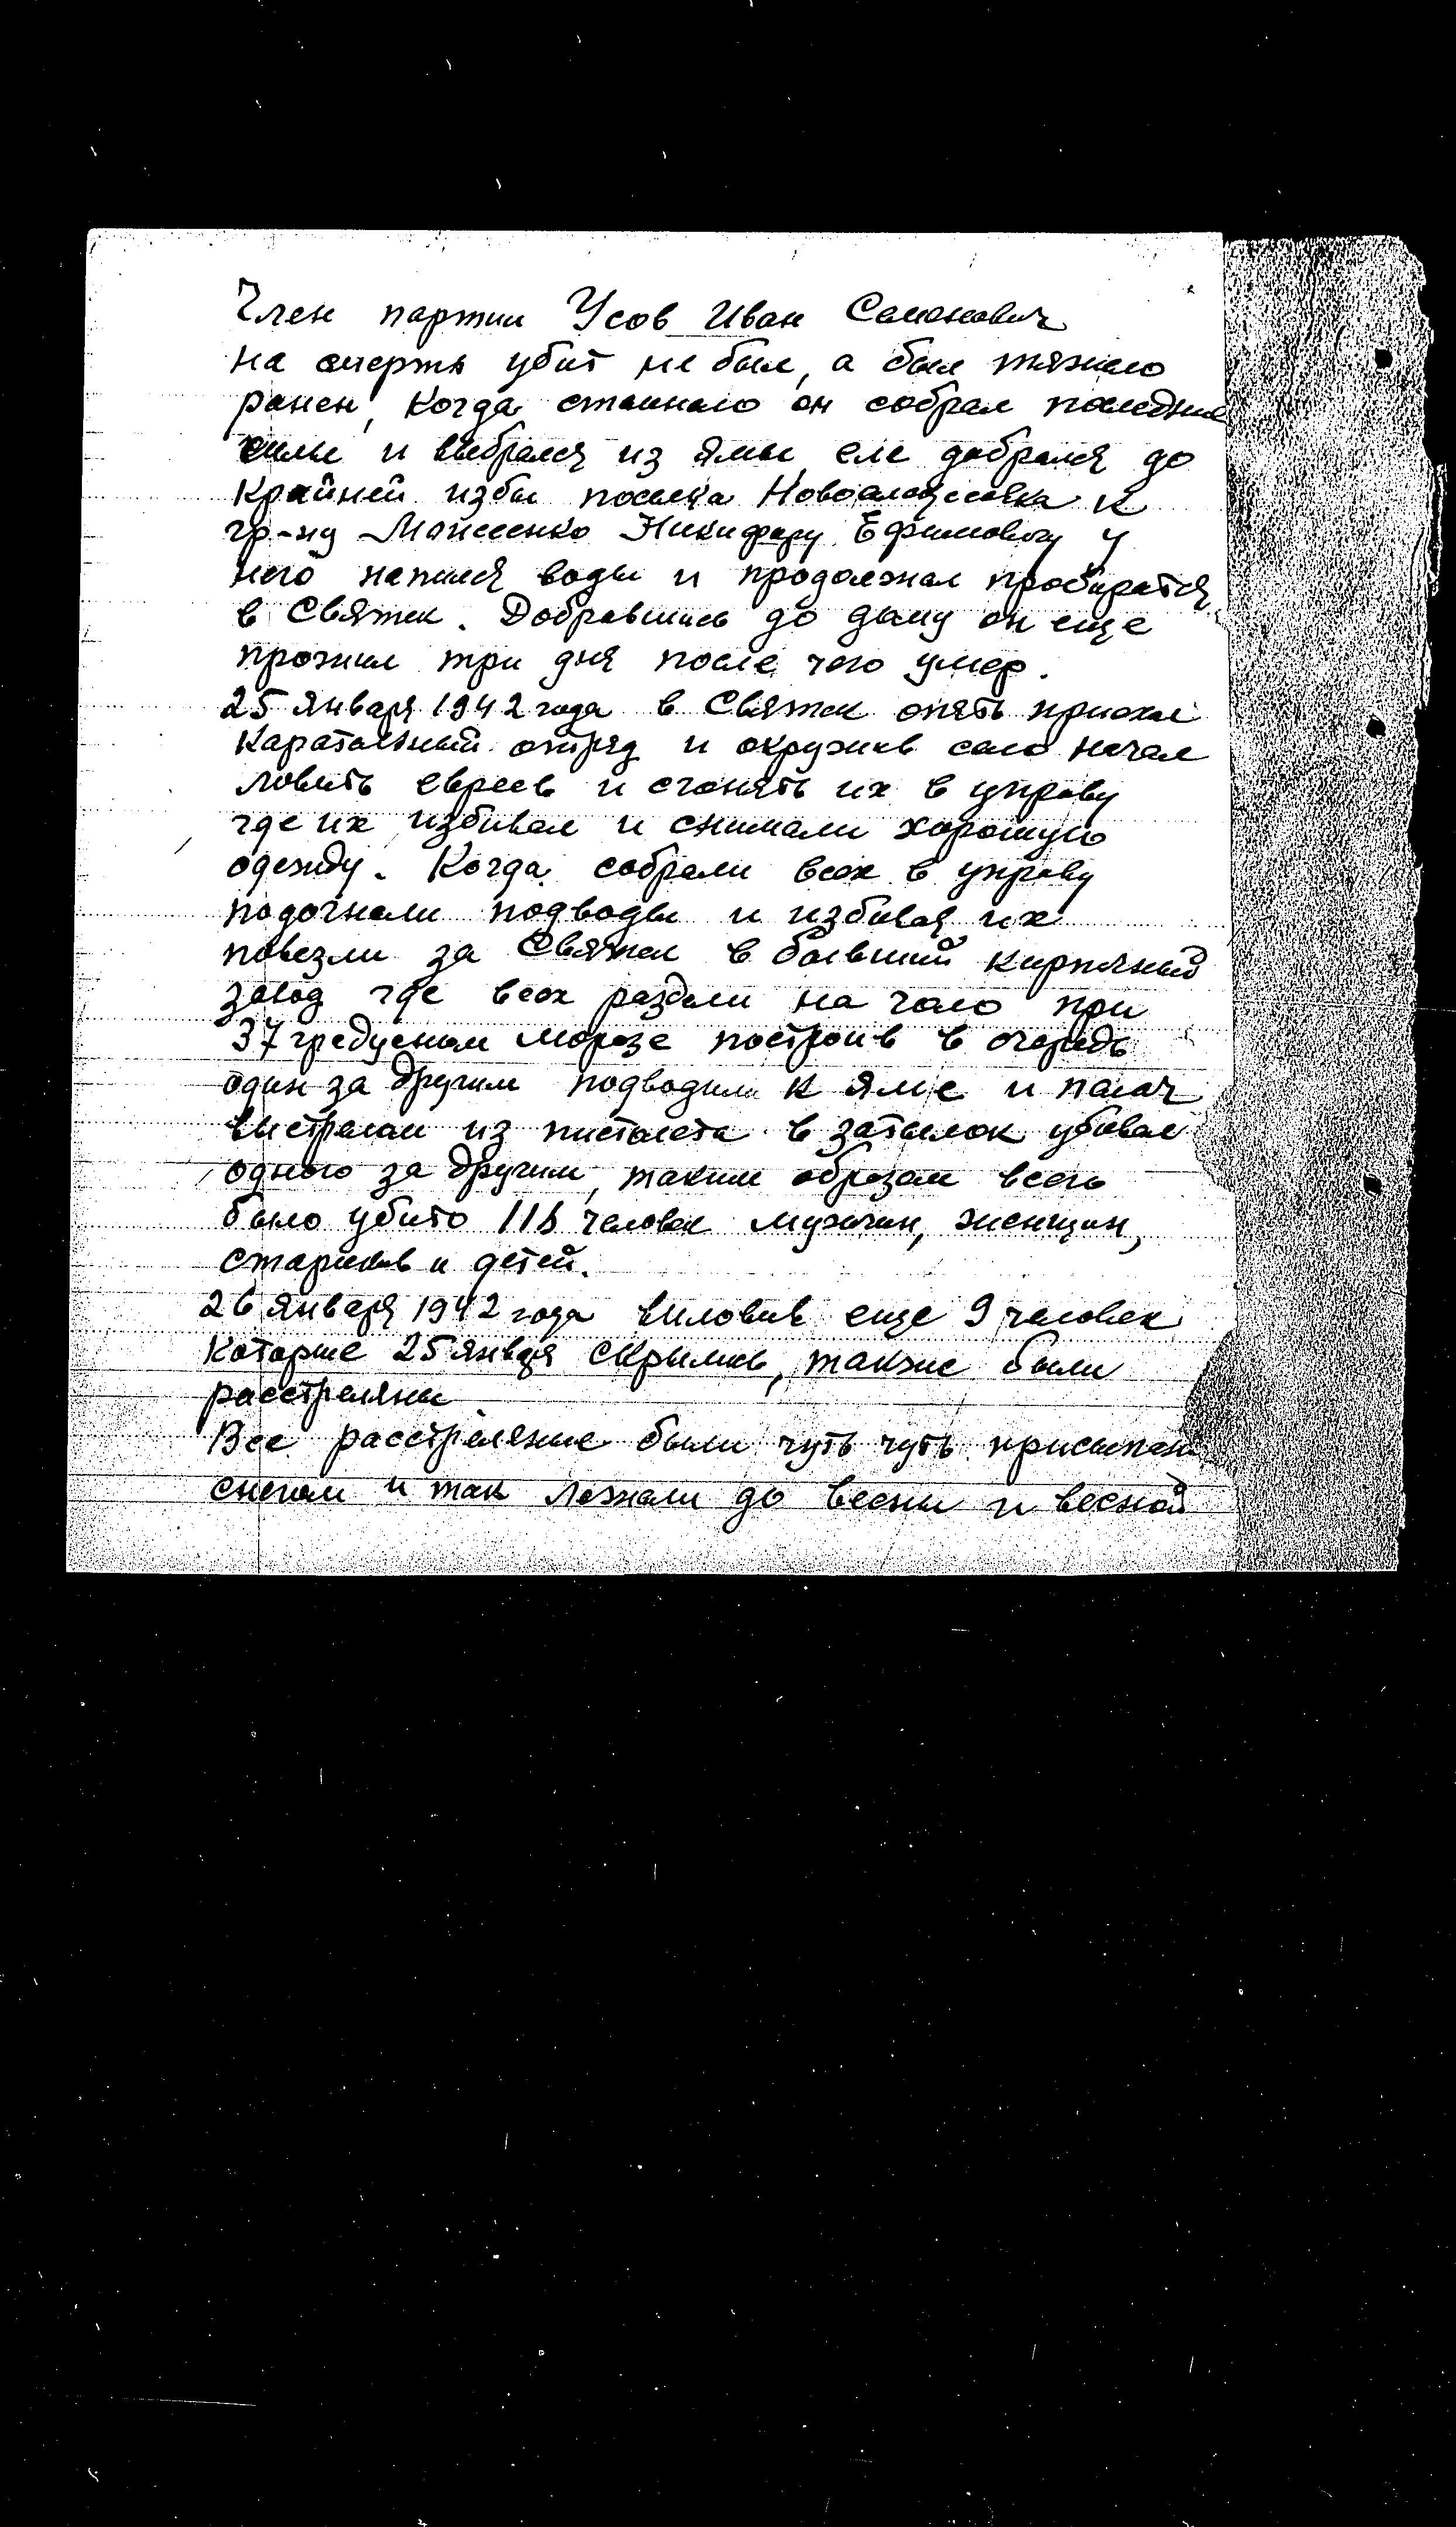 Член партии Усов Иван Семенович
на смерть убит не был, а был тяжело
ранен, когда стемнело он собрал последние
силы и выбрался из ямы, еле добрался до
крайней избы поселка Новоалексеевка к
гр-ну Моисеенко Никифору Ефимовичу у
него напился воды и продолжал пробиратся
в Святск. Добравшись до дому он еще
прожил три дня после чего умер.
25 января 1942 года в Святск опять приехал
карательный отряд и окружив село начал
ловить евреев и сгонять их в управу
где их избивал и снимали хорошую
одежду. Когда собрали всех в управу
подогнали подводы и избивая их
повезли за Святск в бывший кирпичный
завод где всех раздели на голо при
37 градусном морозе построив в очередь
один за другим подводили к яме и палач
выстрелом из пистолета в затылок убивал
одного за другим, таким образом всего
было убито человек мужчин, женщин,
стариков и детей.
26 января 1942 года выловив еще 9 человек
которые 25 января скрылись, также были
расстреляны
Все расстреляные были чуть чуть присыпаны
снегом и так лежали до весны и весной